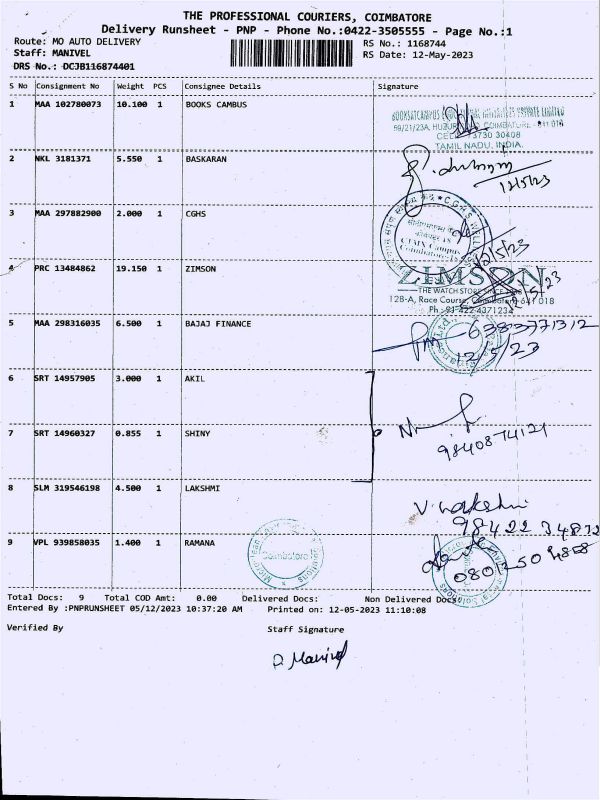 THE PROFESSIONAL COURIERS, COIMBATORE
Delivery Runsheet - PNP - Phone No.:0422-3505555 - Page No.:1
Route: MO AUTO DELIVERY RS No.: 1168744
Staff: MANIVEL RS Date: 12-May-2023
DRS No.: DCJB116874401
S No Consignment No Weight PCS Consignee Details Signature
1 MAA 102780073 10.100 1 BOOKS CAMBUS
59/21/23A, COIMBATORE - 641 018
CELL: 73730 30408
TAMIL NADU, INDIA.
2 NKL 3181371 5.550 1 BASKARAN
12/5/23
3 MAA 297882900 2.000 1 CGHS
12/5/23
4 PRC 13484862 19.150 1 ZIMSON
ZIMSON
THE WATCH STORE SINCE 1948
12B-A, Race Course, Coimbatore-641 018
Ph : 91-422-4371234
5 MAA 298316035 6.500 1 BAJAJ FINANCE
6383771312
12/5/23
6 SRT 14957905 3.000 1 AKIL
7 SRT 14960327 0.855 1 SHINY
9840874121
8 SLM 319546198 4.500 1 LAKSHMI
V. Lakshmi
98422 34872
9 VPL 939858035 1.400 1 RAMANA
Coimbatore
Total Docs: 9 Total COD Amt: 0.00 Delivered Docs: Non Delivered Docs:
Entered By :PNPRUNSHEET 05/12/2023 10:37:20 AM Printed on: 12-05-2023 11:10:08
Verified By Staff Signature
P. Manivel